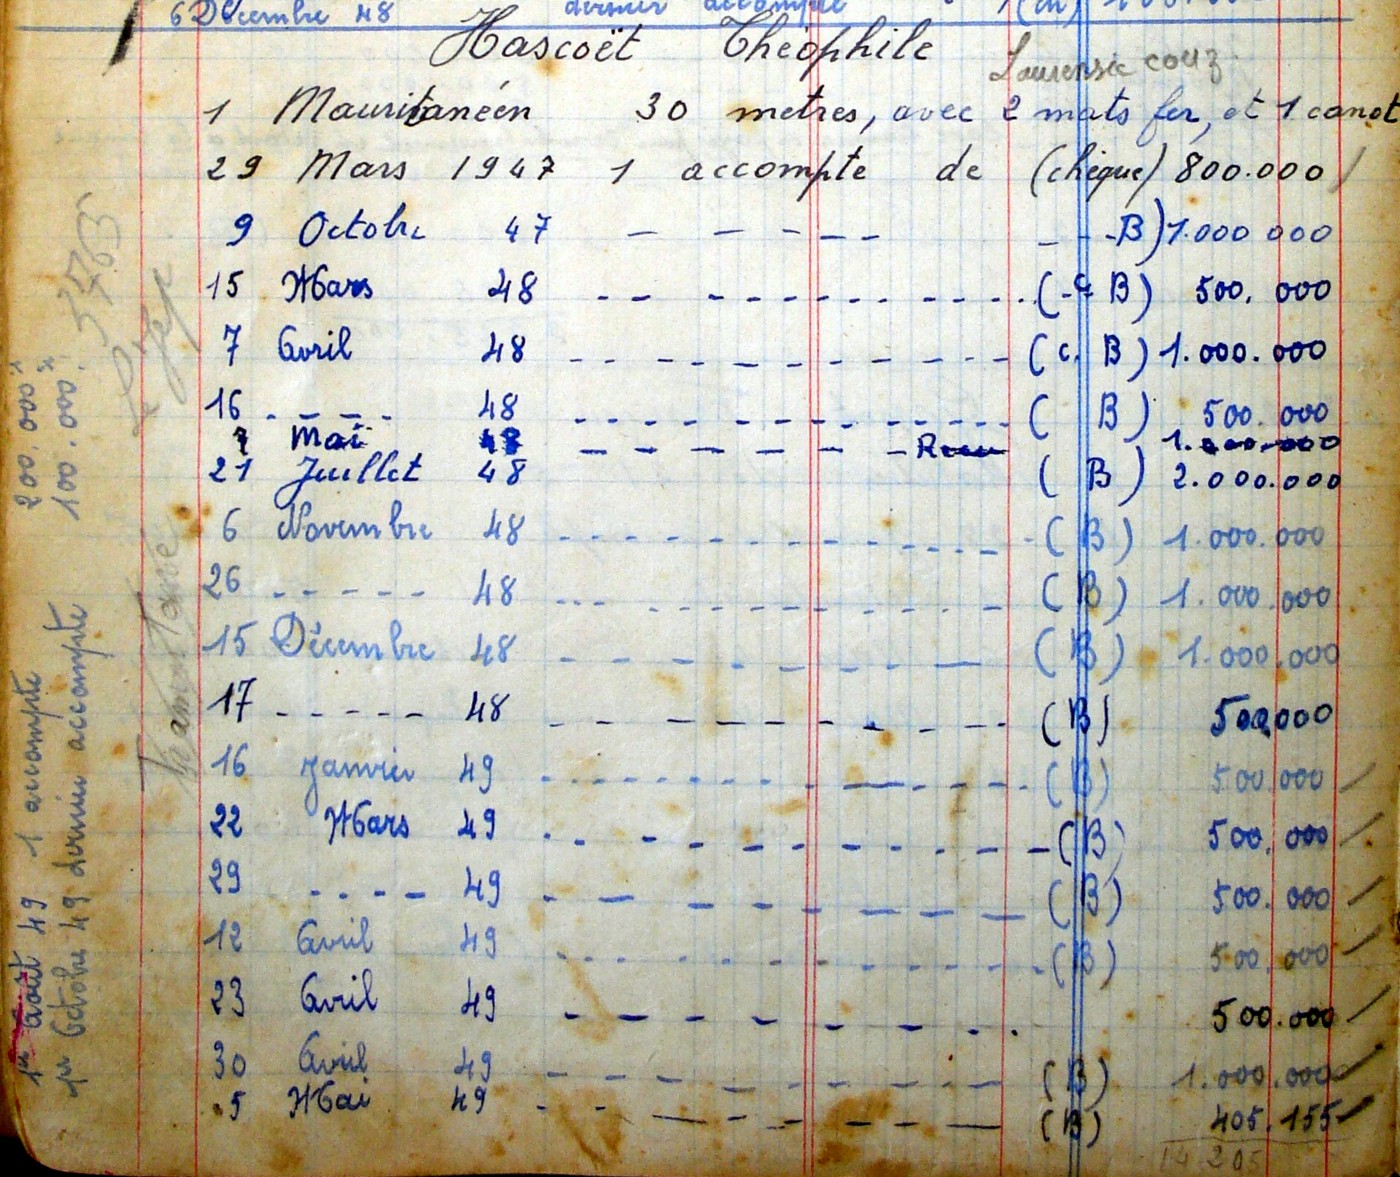 6 Décembre 48 dernier accompte
Hascoët Théophile
1 Mauritanéen 30 metres, avec 2 mats fer, et 1 canot
29 Mars 1947 1 accompte de (chèque) 800.000
9 Octobre 47 — — — — — - - - B) 1.000 000
15 Mars 48 - - - - - - - - (- c B) 500. 000
7 Avril 48 - - - - - - - - (c. B) 1.000.000
16 - - - - 48 - - - - - - - - ( B) 500. 000
7 Mai 48 - - - - - - Recu 1.000.000
21 Juillet 48 ( B) 2.000.000
6 Novembre 48 - - - - - - - - (B) 1.000.000
26 - - - - - 48 - - - - - - - - (B) 1.000.000
15 Décembre 48 - - - - - - - (B) 1.000.000
17 - - - - - 48 - - - - - - - - (B) 500.000
16 Janvier 49 - - - - - - - - (B) 500.000
22 Mars 49 - - - - - - - - (B) 500.000
29 - - - - 49 - - - - - - - (B) 500.000
12 Avril 49 - - - - - - - - (B) 500.000
23 Avril 49 - - - - - - - 500.000
30 Avril 49 - - - - - - - - (B) 1.000.000
5 Mai 49 - - - - - - - (B) 405.155
14 205
1er Août 49 1 accompte 200.000
1er Octobre 49 dernier accompte 100.000